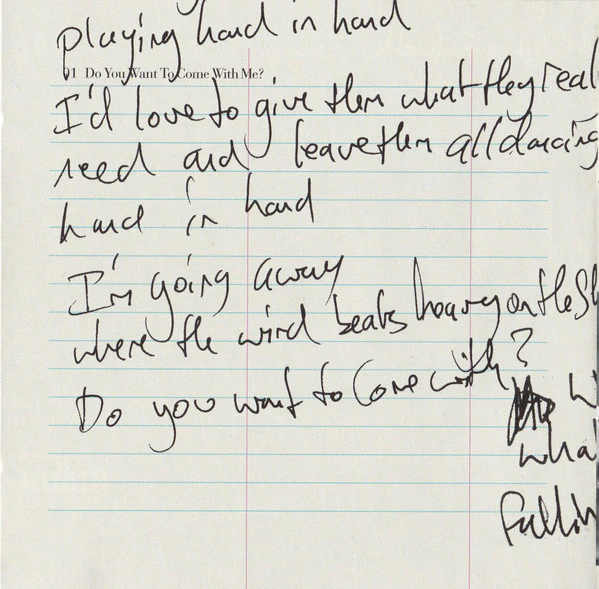 playing hand in hand
01 Do You Want To Come With Me?
I'd love to give them what they real
need and leave them all dancing
hand in hand
I'm going away
where the wind beats heavy on the Sh
Do you want to Come with?
wi
wha
fallin